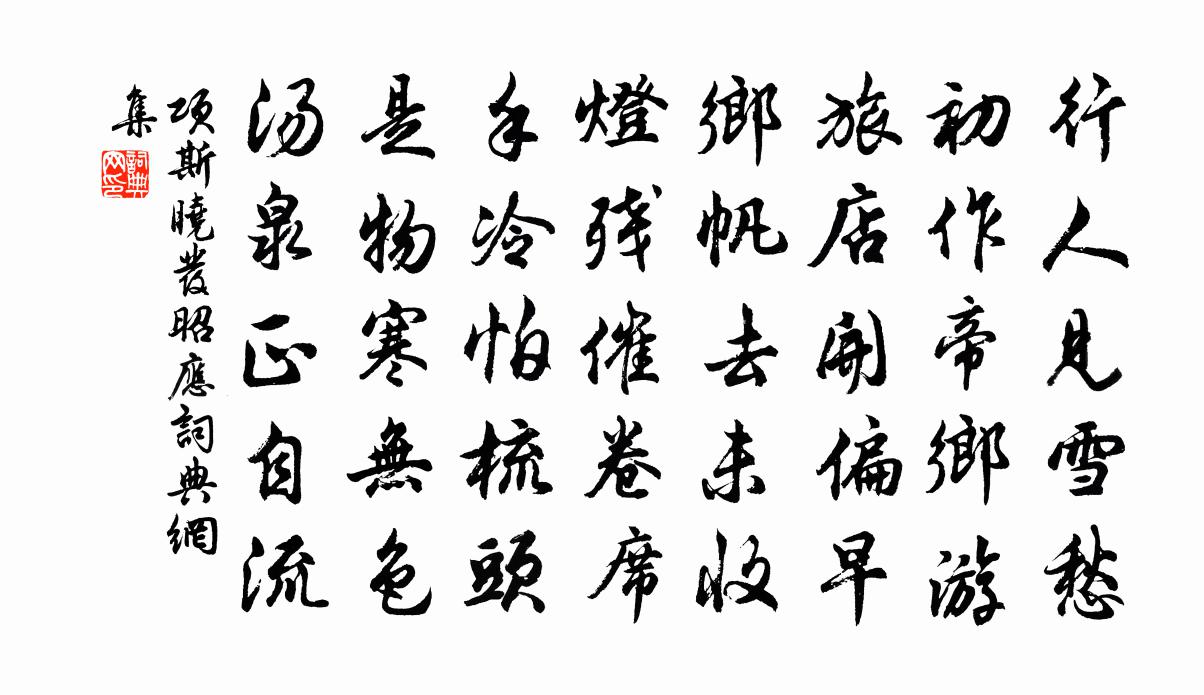 行人見雪愁
初作帝鄉游
旅店開偏早
鄉帆去未收
燈残催卷席
手冷怕梳頭
是物寒無色
湯泉正自流
項斯曉發昭應詞典網
集
詞典
网印